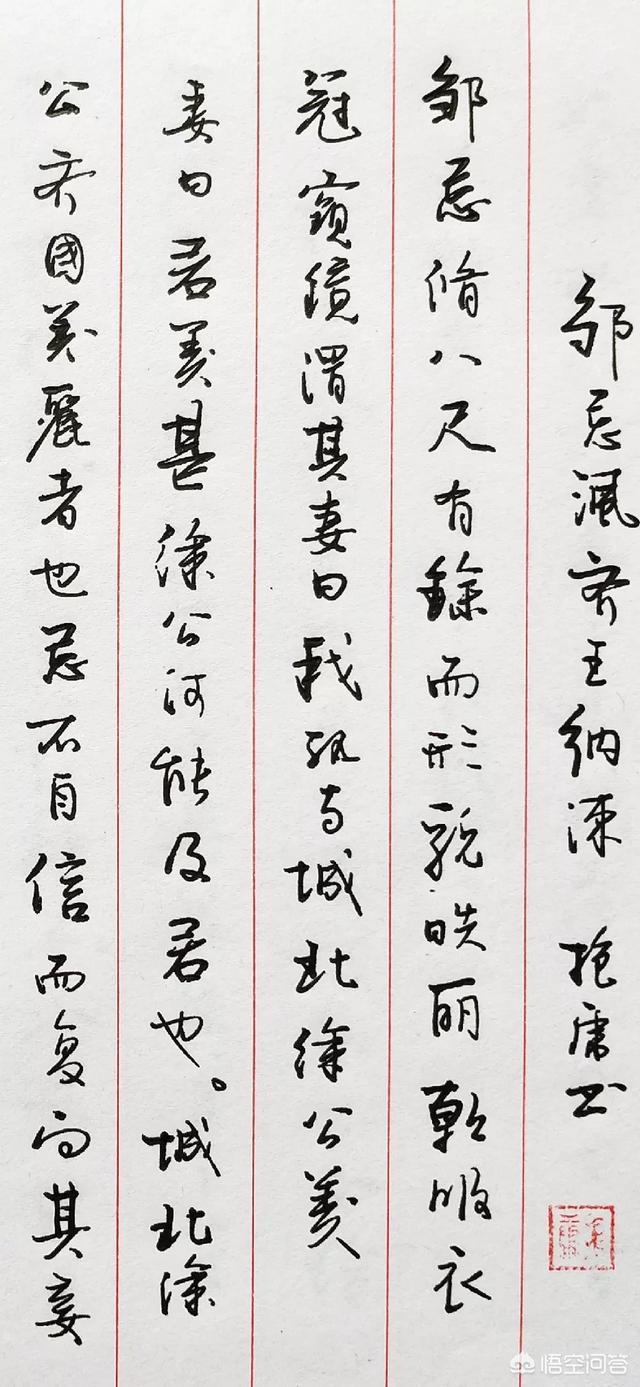 邹忌渢齐王纳谏 抱庸书
邹忌脩八尺有餘而形貌昳丽朝服衣
冠窥镜谓其妻曰我孰与城北徐公美
妻曰君美甚徐公何能及君也。城北徐
公齐国美麗者也忌不自信而复问其妾
悟空问答